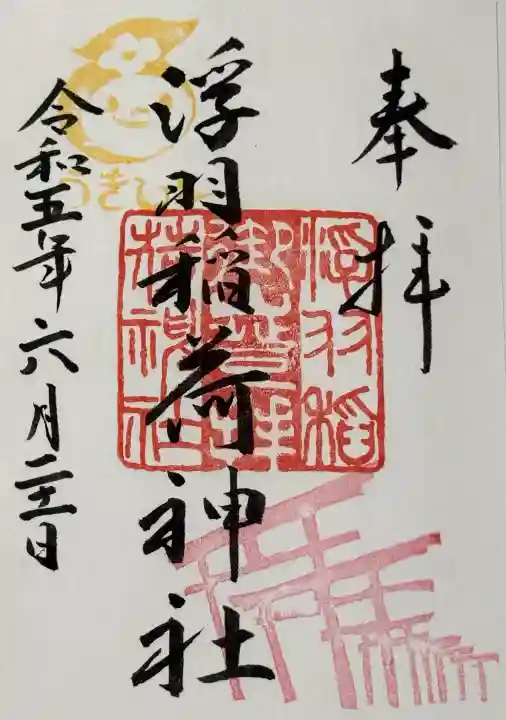 奉拝
浮羽稲荷神社
令和五年六月二十一日
浮羽稲
荷神社